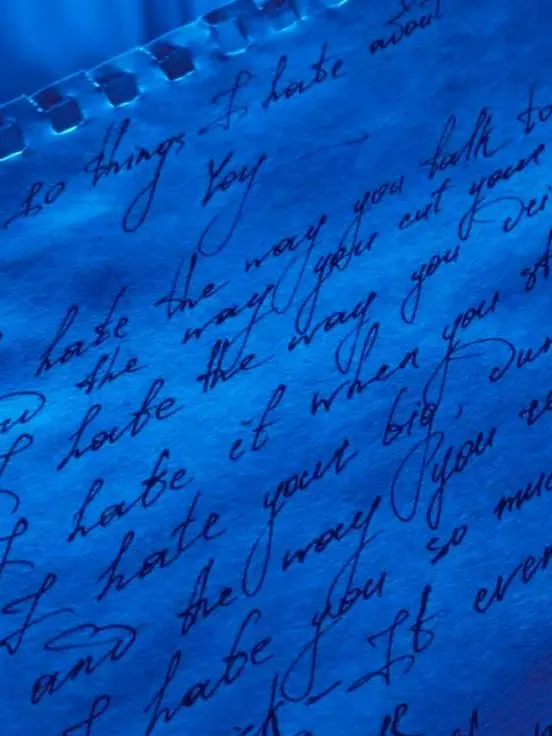 10 things I hate about
You
hate the way you talk to
and the way you cut your
I hate the way you
I hate it when you
I hate your big,
and the way you
I hate you so much
It even